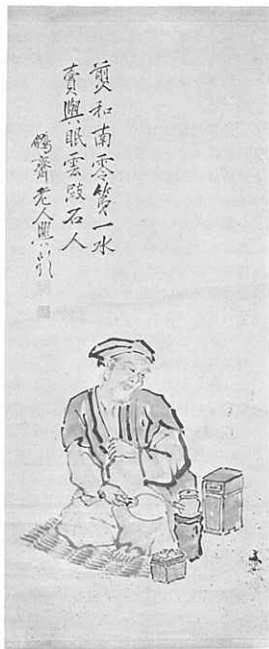 煎和南零第一水
賣與眠雲跂石人
鵬齋老人興題